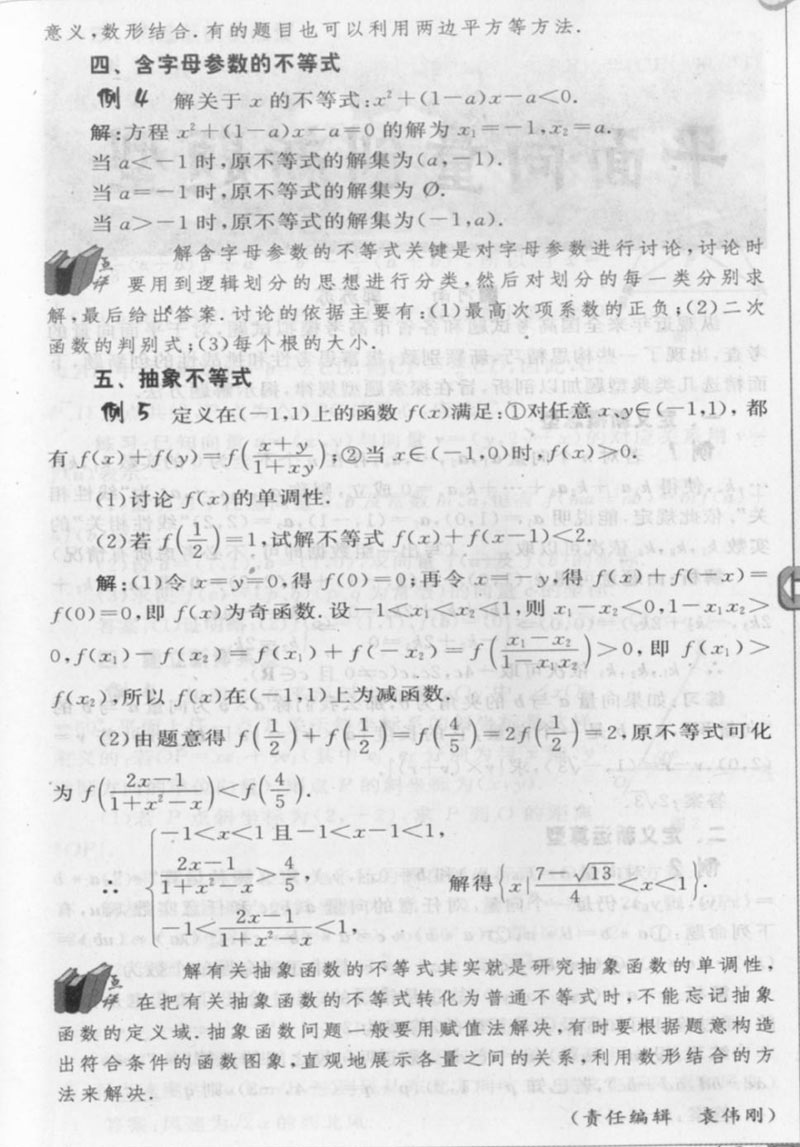 意义,数形结合.有的题目也可以利用两边平方等方法.
四、含字母参数的不等式
例 4 解关于 x 的不等式:x²+(1−a)x−a<0.
解:方程 x²+(1−a)x−a=0 的解为 x₁=−1,x₂=a.
当 a<−1 时,原不等式的解集为(a,−1).
当 a=−1 时,原不等式的解集为 Ø.
当 a>−1 时,原不等式的解集为(−1,a).
点评 解含字母参数的不等式关键是对字母参数进行讨论,讨论时
要用到逻辑划分的思想进行分类,然后对划分的每一类分别求
解,最后给出答案.讨论的依据主要有:(1)最高次项系数的正负;(2)二次
函数的判别式;(3)每个根的大小.
五、抽象不等式
例 5 定义在(−1,1)上的函数 f(x)满足:①对任意 x,y∈(−1,1), 都
有 f(x)+f(y)=f((x+y)/(1+xy));②当 x∈(−1,0)时,f(x)>0.
(1)讨论 f(x)的单调性.
(2)若 f(1/2)=1,试解不等式 f(x)+f(x−1)<2.
解:(1)令 x=y=0,得 f(0)=0;再令 x=−y,得 f(x)+f(−x)=
f(0)=0,即 f(x)为奇函数.设−1<x₁<x₂<1,则 x₁−x₂<0,1−x₁x₂>
0,f(x₁)−f(x₂)=f(x₁)+f(−x₂)=f((x₁−x₂)/(1−x₁x₂))>0,即 f(x₁)>
f(x₂),所以 f(x)在(−1,1)上为减函数.
(2)由题意得 f(1/2)+f(1/2)=f(4/5)=2f(1/2)=2,原不等式可化
为 f((2x−1)/(1+x²−x))<f(4/5).
−1<x<1 且−1<x−1<1,
∴ (2x−1)/(1+x²−x)>4/5, 解得{x|(7−√13)/4<x<1}.
−1<(2x−1)/(1+x²−x)<1,
点评 解有关抽象函数的不等式其实就是研究抽象函数的单调性,
在把有关抽象函数的不等式转化为普通不等式时,不能忘记抽象
函数的定义域.抽象函数问题一般要用赋值法解决,有时要根据题意构造
出符合条件的函数图象,直观地展示各量之间的关系,利用数形结合的方
法来解决.
(责任编辑 袁伟刚)